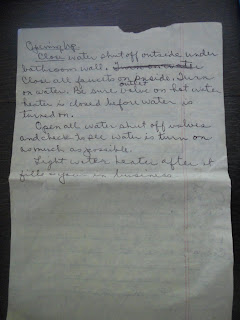 Opening up.
Close water shut off outside under
bathroom wall. Turn on water
Close all faucets on inside. Turn
outlet
on water. Be sure valve on hot water
heater is closed before water is
turned on.
Open all water shut off valves
and check to see water is turn on
as much as possible.
Light water heater after it
fills & your in business